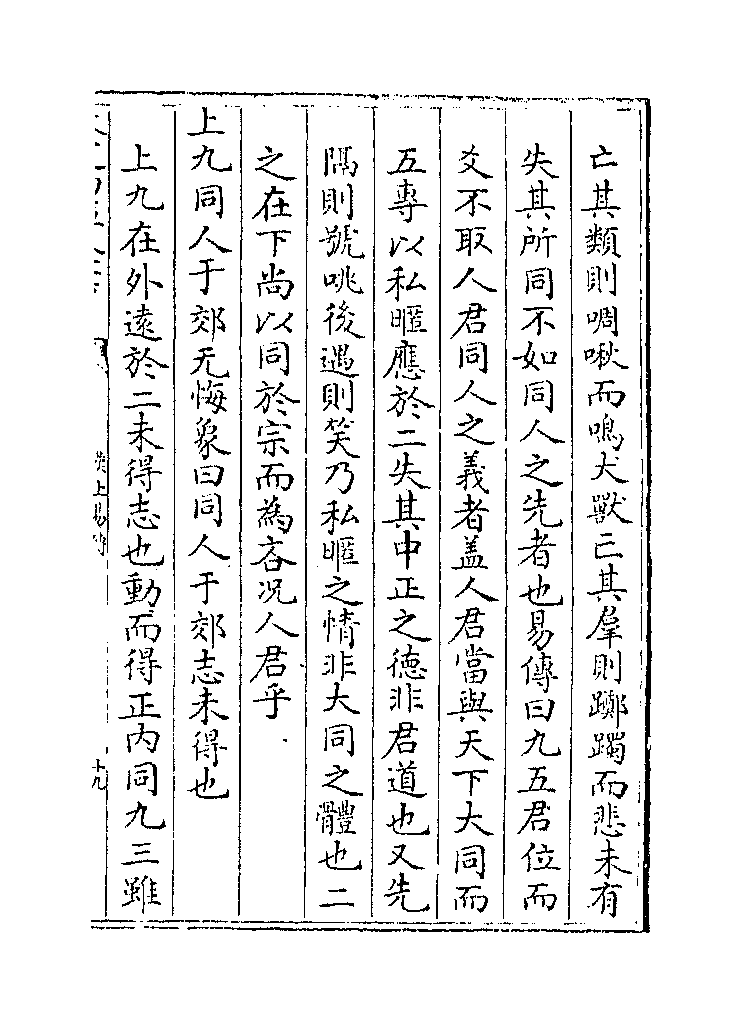 亡其類則啁啾而鳴大獸亡其羣則躑躅而悲未有
失其所同不如同人之先者也易傳曰九五君位而
爻不取人君同人之義者盖人君當與天下大同而
五專以私暱應於二失其中正之德非君道也又先
隅則號咷後遇則笑乃私暱之情非大同之體也二
之在下尚以同於宗而為吝况人君乎
上九同人于郊无悔象曰同人于郊志未得也
上九在外遠於二未得志也動而得正内同九三雖
漢上易傳
十九